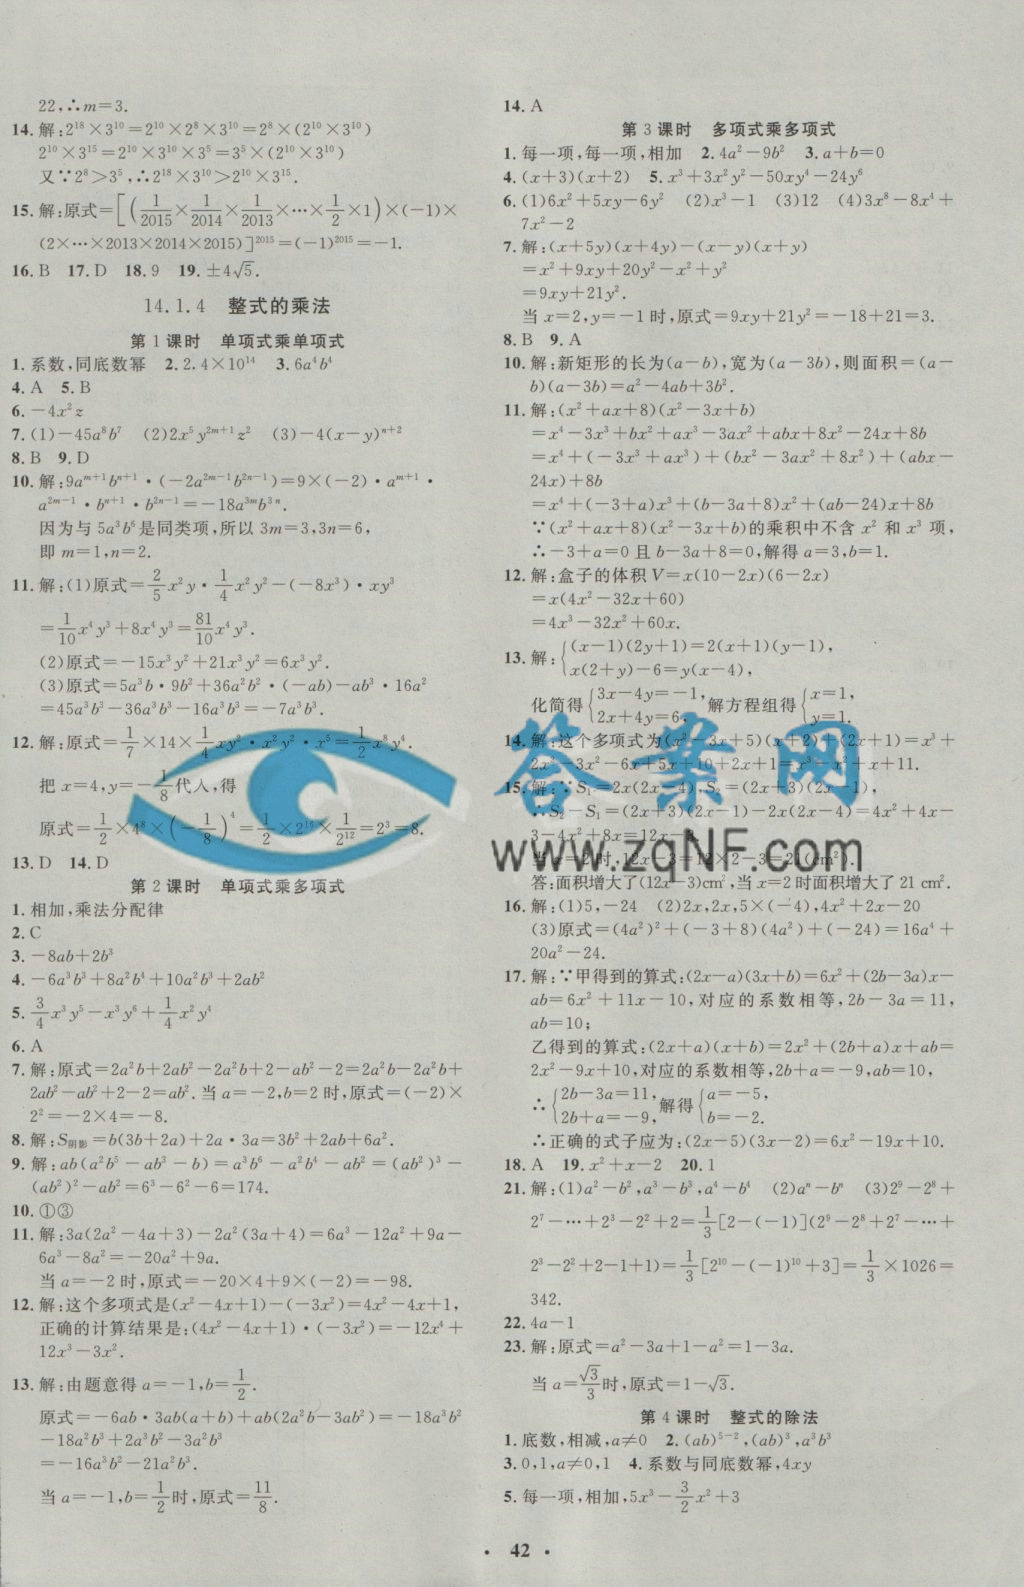 22,∴m=3.
14.解:2¹⁸×3¹⁰=2¹⁰×2⁸×3¹⁰=2⁸×(2¹⁰×3¹⁰)
2¹⁰×3¹⁵=2¹⁰×3¹⁰×3⁵=3⁵×(2¹⁰×3¹⁰)
又∵2⁸>3⁵,∴2¹⁸×3¹⁰>2¹⁰×3¹⁵.
15.解:原式=[(1/2015×1/2014×1/2013×…×1/2×1)×(-1)×
(2×…×2013×2014×2015)]²⁰¹⁵=(-1)²⁰¹⁵=-1.
16.B 17.D 18.9 19.±4√5.
14.1.4 整式的乘法
第1课时 单项式乘单项式
1.系数,同底数幂 2.2.4×10¹⁴ 3.6a⁴b⁴
4.A 5.B
6.-4x²z
7.(1)-45a⁸b⁷ (2)2x⁵y²ᵐ⁺¹z² (3)-4(x-y)ⁿ⁺²
8.B 9.D
10.解:9aᵐ⁺¹bⁿ⁺¹·(-2a²ᵐ⁻¹b²ⁿ⁻¹)=9×(-2)·aᵐ⁺¹·
a²ᵐ⁻¹·bⁿ⁺¹·b²ⁿ⁻¹=-18a³ᵐb³ⁿ.
因为与5a³b⁶是同类项,所以3m=3,3n=6,
即m=1,n=2.
11.解:(1)原式=2/5x²y·1/4x²y²-(-8x³)·xy³
=1/10x⁴y³+8x⁴y³=81/10x⁴y³.
(2)原式=-15x³y²+21x³y²=6x³y².
(3)原式=5a³b·9b²+36a²b²·(-ab)-ab³·16a²
=45a³b³-36a³b³-16a³b³=-7a³b³.
12.解:原式=1/7×14×1/4xy²·x²y²·x⁵=1/2x⁸y⁴.
把x=4,y=-1/8代入,得
原式=1/2×4⁸×(-1/8)⁴=1/2×2¹⁶×1/2¹²=2³=8.
13.D 14.D
第2课时 单项式乘多项式
1.相加,乘法分配律
2.C
3.-8ab+2b³
4.-6a³b³+8a²b⁴+10a²b³+2ab²
5.3/4x³y⁵-x³y⁶+1/4x²y⁴
6.A
7.解:原式=2a²b+2ab²-2a²b+2-ab²-2=2a²b-2a²b+
2ab²-ab²+2-2=ab².当a=-2,b=2时,原式=(-2)×
2²=-2×4=-8.
8.解:S阴影=b(3b+2a)+2a·3a=3b²+2ab+6a².
9.解:ab(a²b⁵-ab³-b)=a³b⁶-a²b⁴-ab²=(ab²)³-
(ab²)²-ab²=6³-6²-6=174.
10.①③
11.解:3a(2a²-4a+3)-2a²(3a+4)=6a³-12a²+9a-
6a³-8a²=-20a²+9a.
当a=-2时,原式=-20×4+9×(-2)=-98.
12.解:这个多项式是(x²-4x+1)-(-3x²)=4x²-4x+1,
正确的计算结果是:(4x²-4x+1)·(-3x²)=-12x⁴+
12x³-3x².
13.解:由题意得a=-1,b=1/2.
原式=-6ab·3ab(a+b)+ab(2a²b-3ab²)=-18a³b²
-18a²b³+2a³b²-3a²b³
=-16a³b²-21a²b³.
当a=-1,b=1/2时,原式=11/8.
14.A
第3课时 多项式乘多项式
1.每一项,每一项,相加 2.4a²-9b² 3.a+b=0
4.(x+3)(x+2) 5.x³+3x²y²-50xy⁴-24y⁶
6.(1)6x²+5xy-6y² (2)x³-1 (3)12 (4)3x⁸-8x⁴+
7x²-2
7.解:(x+5y)(x+4y)-(x-y)(x+y)
=x²+9xy+20y²-x²+y²
=9xy+21y².
当x=2,y=-1时,原式=9xy+21y²=-18+21=3.
8.B 9.A
10.解:新矩形的长为(a-b),宽为(a-3b),则面积=(a-
b)(a-3b)=a²-4ab+3b².
11.解:(x²+ax+8)(x²-3x+b)
=x⁴-3x³+bx²+ax³-3ax²+abx+8x²-24x+8b
=x⁴+(-3x³+ax³)+(bx²-3ax²+8x²)+(abx-
24x)+8b
=x⁴+(-3+a)x³+(b-3a+8)x²+(ab-24)x+8b
∵(x²+ax+8)(x²-3x+b)的乘积中不含x²和x³项,
∴-3+a=0且b-3a+8=0,解得a=3,b=1.
12.解:盒子的体积V=x(10-2x)(6-2x)
=x(4x²-32x+60)
=4x³-32x²+60x.
13.解:{(x-1)(2y+1)=2(x+1)(y-1),
x(2+y)-6=y(x-4),
化简得{3x-4y=-1, 2x+4y=6. 解方程组得{x=1, y=1.
14.解:这个多项式为(x²-3x+5)(x+2)+(2x+1)=x³+
2x²-3x²-6x+5x+10+2x+1=x³-x²+x+11.
15.解:∵S₁=2x(2x-4),S₂=(2x+3)(2x-1),
∴S₂-S₁=(2x+3)(2x-1)-2x(2x-4)=4x²+4x-
3-4x²+8x=12x-3.
当x=2时,12x-3=12×2-3=21(cm²).
答:面积增大了(12x-3)cm²,当x=2时面积增大了21 cm².
16.解:(1)5,-24 (2)2x,2x,5×(-4),4x²+2x-20
(3)原式=(4a²)²+(-3+8)(4a²)+(-24)=16a⁴+
20a²-24.
17.解:∵甲得到的算式:(2x-a)(3x+b)=6x²+(2b-3a)x-
ab=6x²+11x-10,对应的系数相等,2b-3a=11,
ab=10;
乙得到的算式:(2x+a)(x+b)=2x²+(2b+a)x+ab=
2x²-9x+10,对应的系数相等,2b+a=-9,ab=10,
∴{2b-3a=11, 2b+a=-9, 解得{a=-5, b=-2.
∴正确的式子应为:(2x-5)(3x-2)=6x²-19x+10.
18.A 19.x²+x-2 20.1
21.解:(1)a²-b²,a³-b³,a⁴-b⁴ (2)aⁿ-bⁿ (3)2⁹-2⁸+
2⁷-…+2³-2²+2=1/3[2-(-1)](2⁹-2⁸+2⁷-…+
2³-2²+2-1+1)=1/3[2¹⁰-(-1)¹⁰+3]=1/3×1026=
342.
22.4a-1
23.解:原式=a²-3a+1-a²=1-3a.
当a=√3/3时,原式=1-√3.
第4课时 整式的除法
1.底数,相减,a≠0 2.(ab)⁵⁻²,(ab)³,a³b³
3.0,1,a≠0,1 4.系数与同底数幂,4xy
5.每一项,相加,5x³-3/2x²+3
答案网
www.zqNF.com
· 42 ·